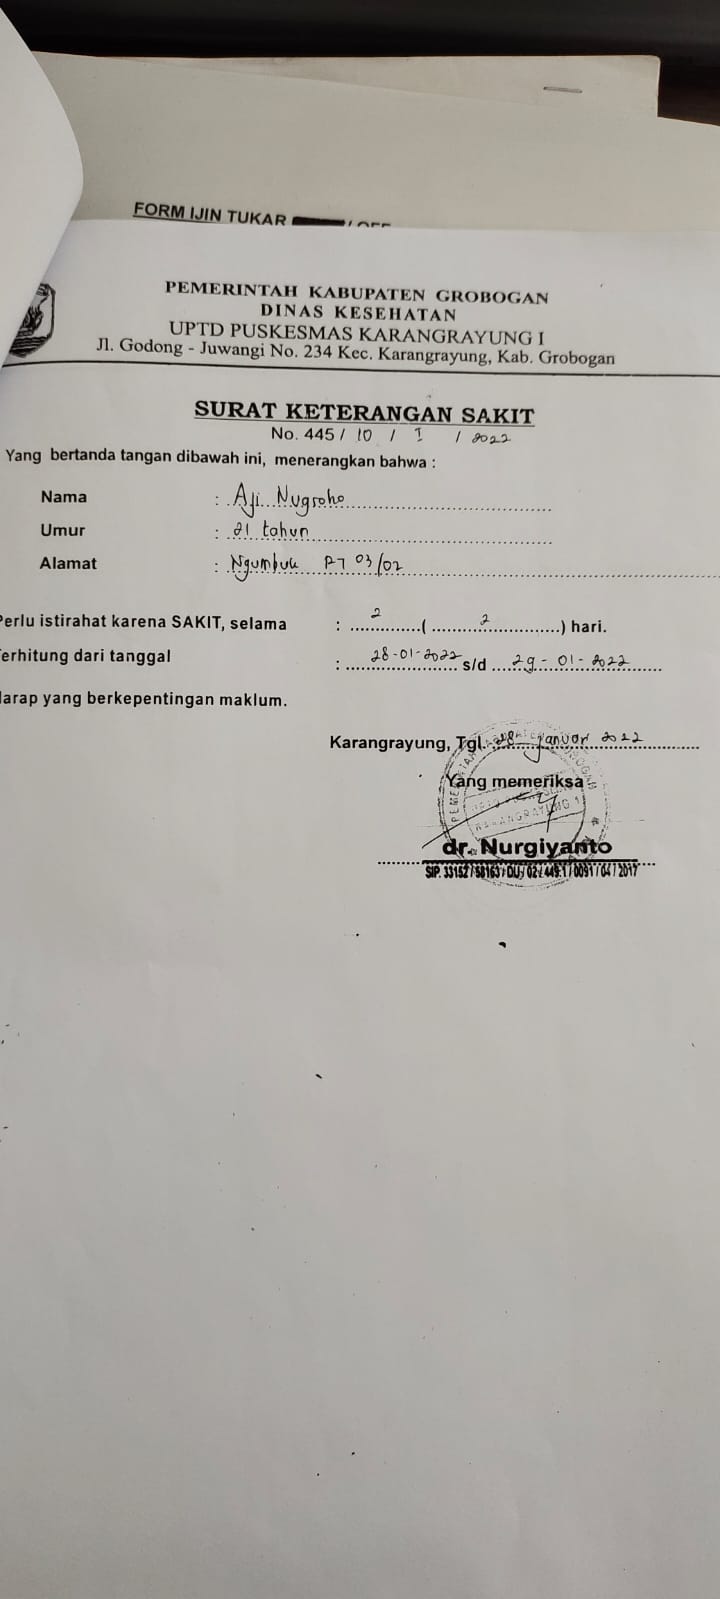 FORM IJIN TUKAR
PEMERINTAH KABUPATEN GROBOGAN
DINAS KESEHATAN
UPTD PUSKESMAS KARANGRAYUNG I
Jl. Godong - Juwangi No. 234 Kec. Karangrayung, Kab. Grobogan
SURAT KETERANGAN SAKIT
No. 445 / 10 / I / 2022
Yang bertanda tangan dibawah ini, menerangkan bahwa :
Nama : Aji Nugroho
Umur : 21 tahun
Alamat : RT 03/02
Perlu istirahat karena SAKIT, selama : 2 ( 2 ) hari.
Terhitung dari tanggal : 28-01-2022 s/d 29-01-2022
Harap yang berkepentingan maklum.
Karangrayung, Tgl. 28 januari 2022
Yang memeriksa
dr. Nurgiyanto